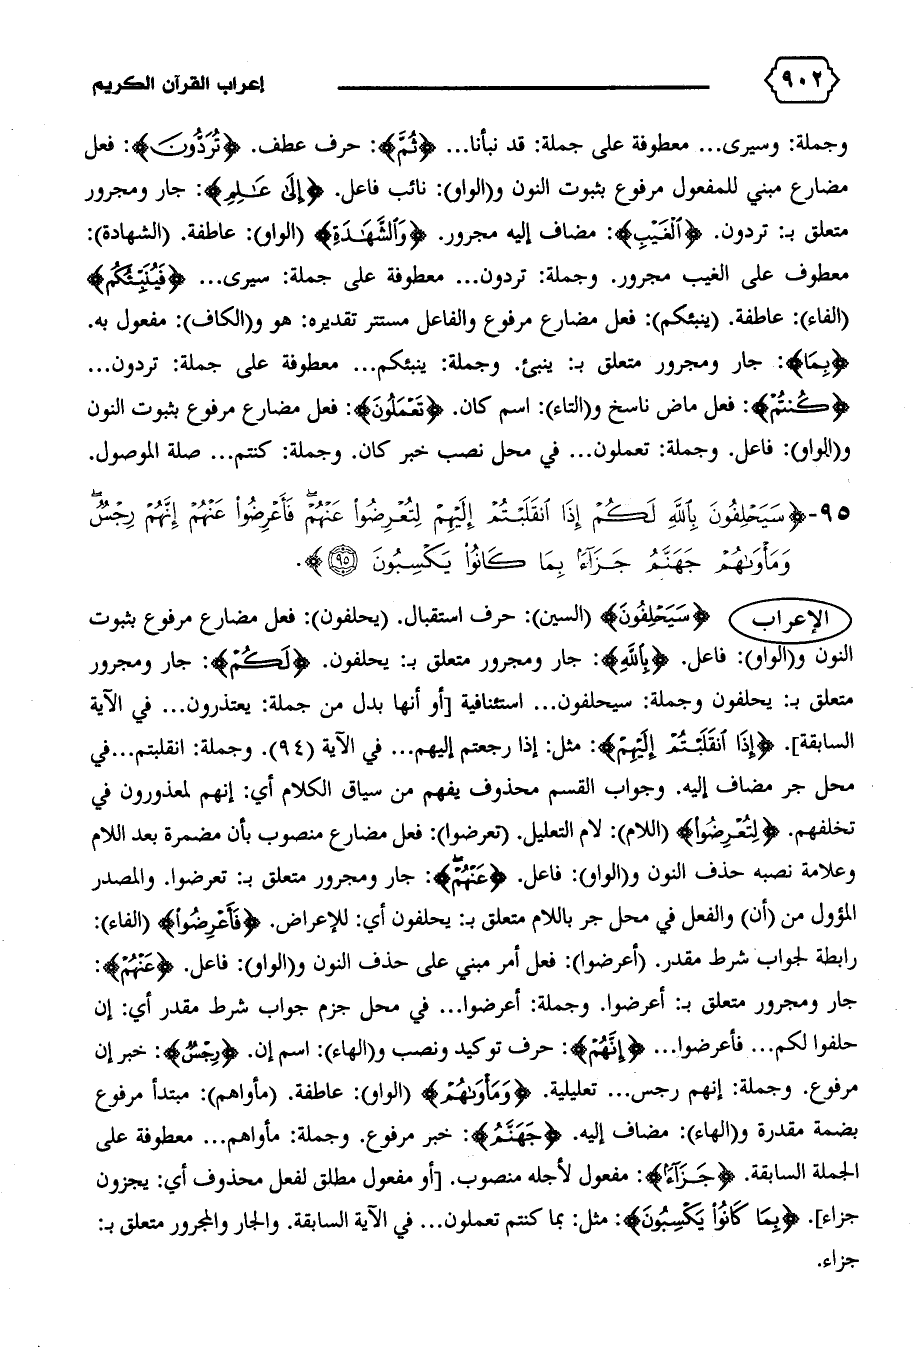 ٩٠٢
إعراب القرآن الكريم
وجملة: وسيرى... معطوفة على جملة: قد نبأنا... ﴿ثُمَّ﴾: حرف عطف. ﴿تُرَدُّونَ﴾: فعل
مضارع مبني للمفعول مرفوع بثبوت النون و(الواو): نائب فاعل. ﴿إِلَىٰ عَـٰلِمِ﴾: جار ومجرور
متعلق بـ: تردون. ﴿ٱلْغَيْبِ﴾: مضاف إليه مجرور. ﴿وَٱلشَّهَـٰدَةِ﴾ (الواو): عاطفة. (الشهادة):
معطوف على الغيب مجرور. وجملة: تردون... معطوفة على جملة: سيرى... ﴿فَيُنَبِّئُكُم﴾
(الفاء): عاطفة. (ينبئكم): فعل مضارع مرفوع والفاعل مستتر تقديره: هو و(الكاف): مفعول به.
﴿بِمَا﴾: جار ومجرور متعلق بـ: ينبئ. وجملة: ينبئكم... معطوفة على جملة: تردون...
﴿كُنتُمْ﴾: فعل ماض ناسخ و(التاء): اسم كان. ﴿تَعْمَلُونَ﴾: فعل مضارع مرفوع بثبوت النون
و(الواو): فاعل. وجملة: تعملون... في محل نصب خبر كان. وجملة: كنتم... صلة الموصول.
٩٥- ﴿سَيَحْلِفُونَ بِٱللَّهِ لَكُمْ إِذَا ٱنقَلَبْتُمْ إِلَيْهِمْ لِتُعْرِضُوا۟ عَنْهُمْ ۖ فَأَعْرِضُوا۟ عَنْهُمْ إِنَّهُمْ رِجْسٌ ۖ
وَمَأْوَىٰهُمْ جَهَنَّمُ جَزَآءًۢ بِمَا كَانُوا۟ يَكْسِبُونَ ٩٥﴾.
الإعراب ﴿سَيَحْلِفُونَ﴾ (السين): حرف استقبال. (يحلفون): فعل مضارع مرفوع بثبوت
النون و(الواو): فاعل. ﴿بِٱللَّهِ﴾: جار ومجرور متعلق بـ: يحلفون. ﴿لَكُمْ﴾: جار ومجرور
متعلق بـ: يحلفون وجملة: سيحلفون... استئنافية [أو أنها بدل من جملة: يعتذرون... في الآية
السابقة]. ﴿إِذَا ٱنقَلَبْتُمْ إِلَيْهِمْ﴾: مثل: إذا رجعتم إليهم... في الآية (٩٤). وجملة: انقلبتم...في
محل جر مضاف إليه. وجواب القسم محذوف يفهم من سياق الكلام أي: إنهم لمعذورون في
تخلفهم. ﴿لِتُعْرِضُوا۟﴾ (اللام): لام التعليل. (تعرضوا): فعل مضارع منصوب بأن مضمرة بعد اللام
وعلامة نصبه حذف النون و(الواو): فاعل. ﴿عَنْهُمْ ۖ﴾: جار ومجرور متعلق بـ: تعرضوا. والمصدر
المؤول من (أن) والفعل في محل جر باللام متعلق بـ: يحلفون أي: للإعراض. ﴿فَأَعْرِضُوا۟﴾ (الفاء):
رابطة لجواب شرط مقدر. (أعرضوا): فعل أمر مبني على حذف النون و(الواو): فاعل. ﴿عَنْهُمْ﴾:
جار ومجرور متعلق بـ: أعرضوا. وجملة: أعرضوا... في محل جزم جواب شرط مقدر أي: إن
حلفوا لكم... فأعرضوا... ﴿إِنَّهُمْ﴾: حرف توكيد ونصب و(الهاء): اسم إن. ﴿رِجْسٌ﴾: خبر إن
مرفوع. وجملة: إنهم رجس... تعليلية. ﴿وَمَأْوَىٰهُمْ﴾ (الواو): عاطفة. (مأواهم): مبتدأ مرفوع
بضمة مقدرة و(الهاء): مضاف إليه. ﴿جَهَنَّمُ﴾: خبر مرفوع. وجملة: مأواهم... معطوفة على
الجملة السابقة. ﴿جَزَآءًۢ﴾: مفعول لأجله منصوب. [أو مفعول مطلق لفعل محذوف أي: يجزون
جزاء]. ﴿بِمَا كَانُوا۟ يَكْسِبُونَ﴾: مثل: بما كنتم تعملون... في الآية السابقة. والجار والمجرور متعلق بـ:
جزاء.